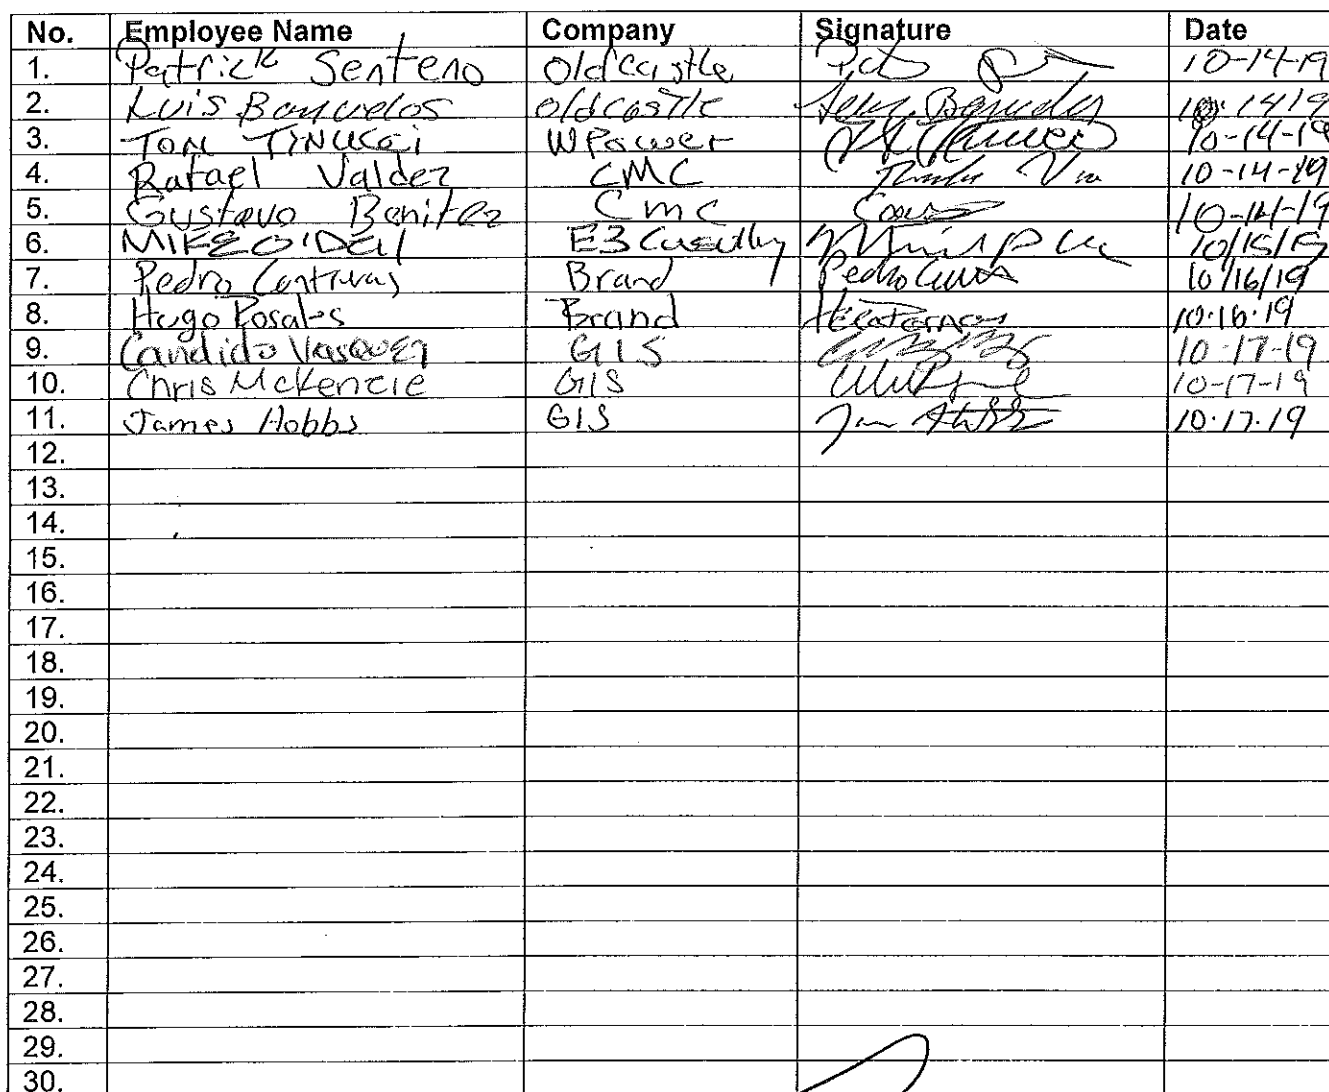 No. Employee Name Company Signature Date
1. Patrick Senteno Oldcastle 10-14-19
2. Luis Banuelos oldcastle Banuelos 10-1419
3. TOM TINUCCI WPower 10-14-19
4. Rafael Valdez CMC 10-14-19
5. Gustavo Benitez Cmc 10-14-19
6. MIKE O'Dell E3 10/15/19
7. Pedro Contreras Brand Pedro 10/16/19
8. Hugo Rosales Brand 10.16.19
9. Candido Vasquez GIS 10-17-19
10. Chris McKenzie GIS 10-17-19
11. James Hobbs GIS 10.17.19
12.
13.
14.
15.
16.
17.
18.
19.
20.
21.
22.
23.
24.
25.
26.
27.
28.
29.
30.